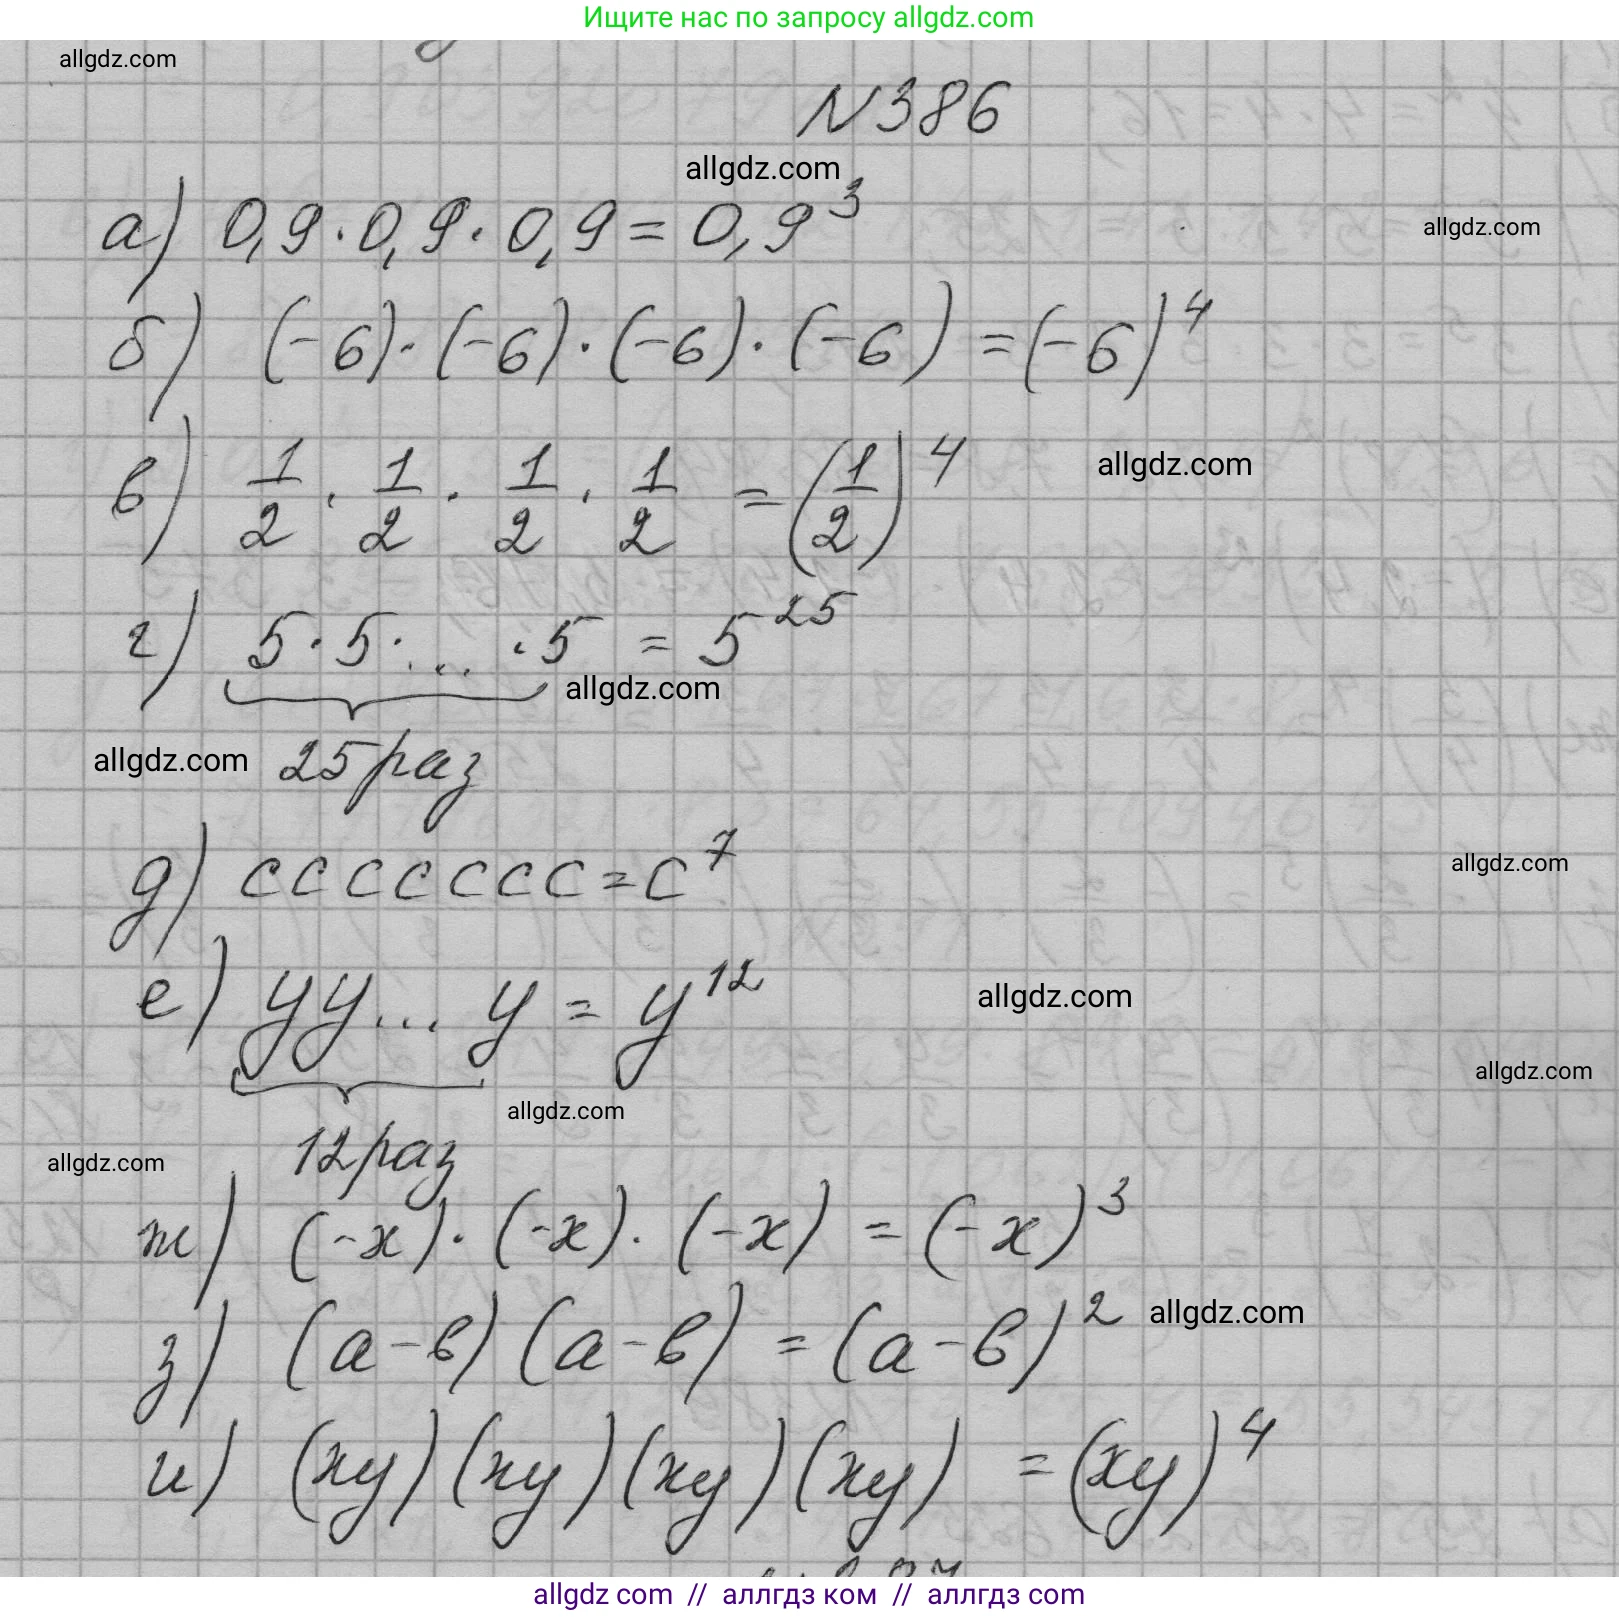 Ищите нас по запросу allgdz.com
allgdz.com
N386
allgdz.com
а) 0,9·0,9·0,9=0,9³
allgdz.com
б) (-6)·(-6)·(-6)·(-6)=(-6)⁴
в) 1/2 · 1/2 · 1/2 · 1/2 = (1/2)⁴
allgdz.com
г) 5·5·...·5 = 5²⁵
allgdz.com
allgdz.com
25 раз
д) ccccccc=c⁷
allgdz.com
е) yy...y = y¹²
allgdz.com
allgdz.com
allgdz.com
12 раз
allgdz.com
ж) (-x)·(-x)·(-x) = (-x)³
з) (a-b)(a-b) = (a-b)²
allgdz.com
и) (xy)(xy)(xy)(xy) = (xy)⁴
allgdz com // аллгдз ком // аллгдз.com